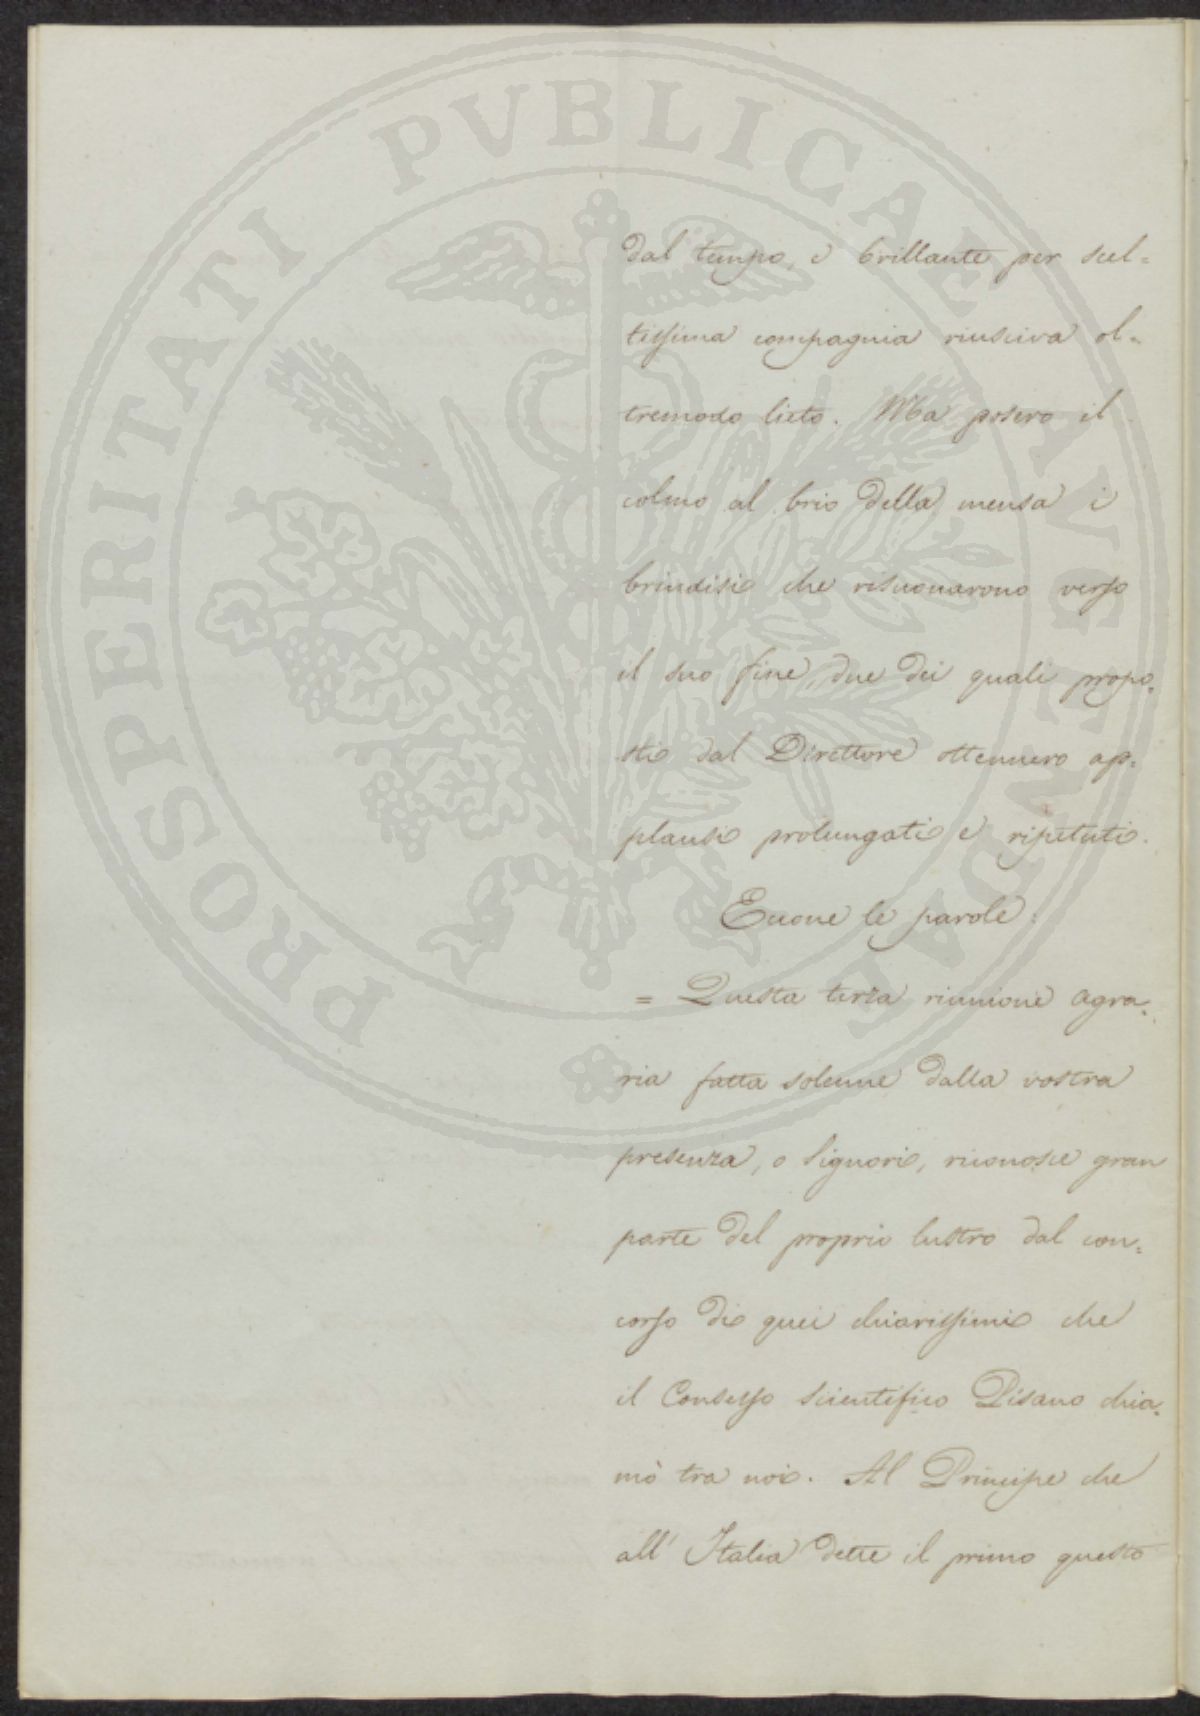 PROSPERITATI PVBLICAE AVGENDAE
dal tempo, e brillante per scel=
tissima compagnia riusciva ol=
tremodo lieto. Ma posero il
colmo al brio della mensa i
brindisi che risuonarono verso
il suo fine, due dei quali propo=
sti dal Direttore ottennero ap=
plausi prolungati e ripetuti.
Eccone le parole:
= Questa terza riunione agra=
ria fatta solenne dalla vostra
presenza, o Signori, riconosce gran
parte del proprio lustro dal con=
corso di quei chiarissimi che
il Consesso scientifico Pisano chia=
mò tra noi. Al Principe che
all' Italia dette il primo questo